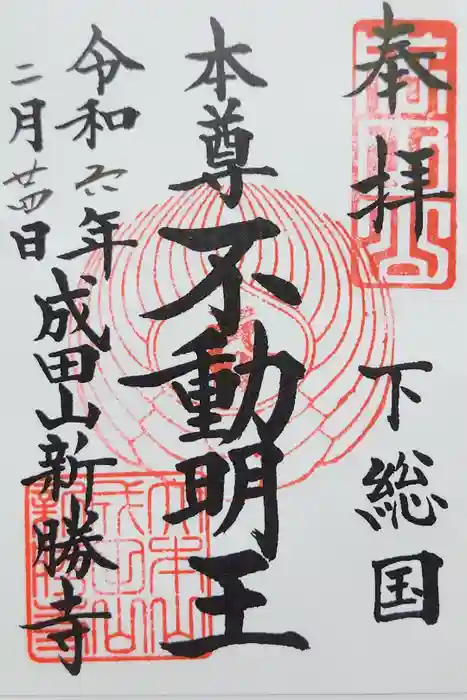 奉拝
下総国
本尊不動明王
令和六年
二月廿四日
成田山新勝寺